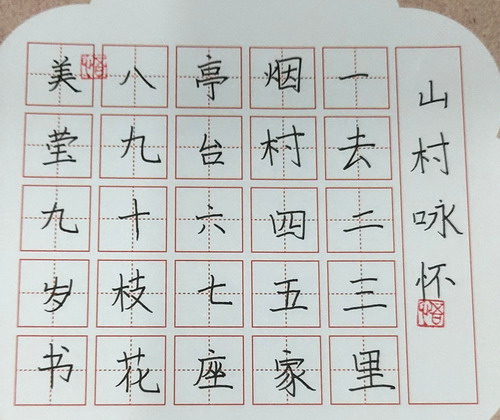 山村咏怀
一去二三里
烟村四五家
亭台六七座
八九十枝花
美莹九岁书